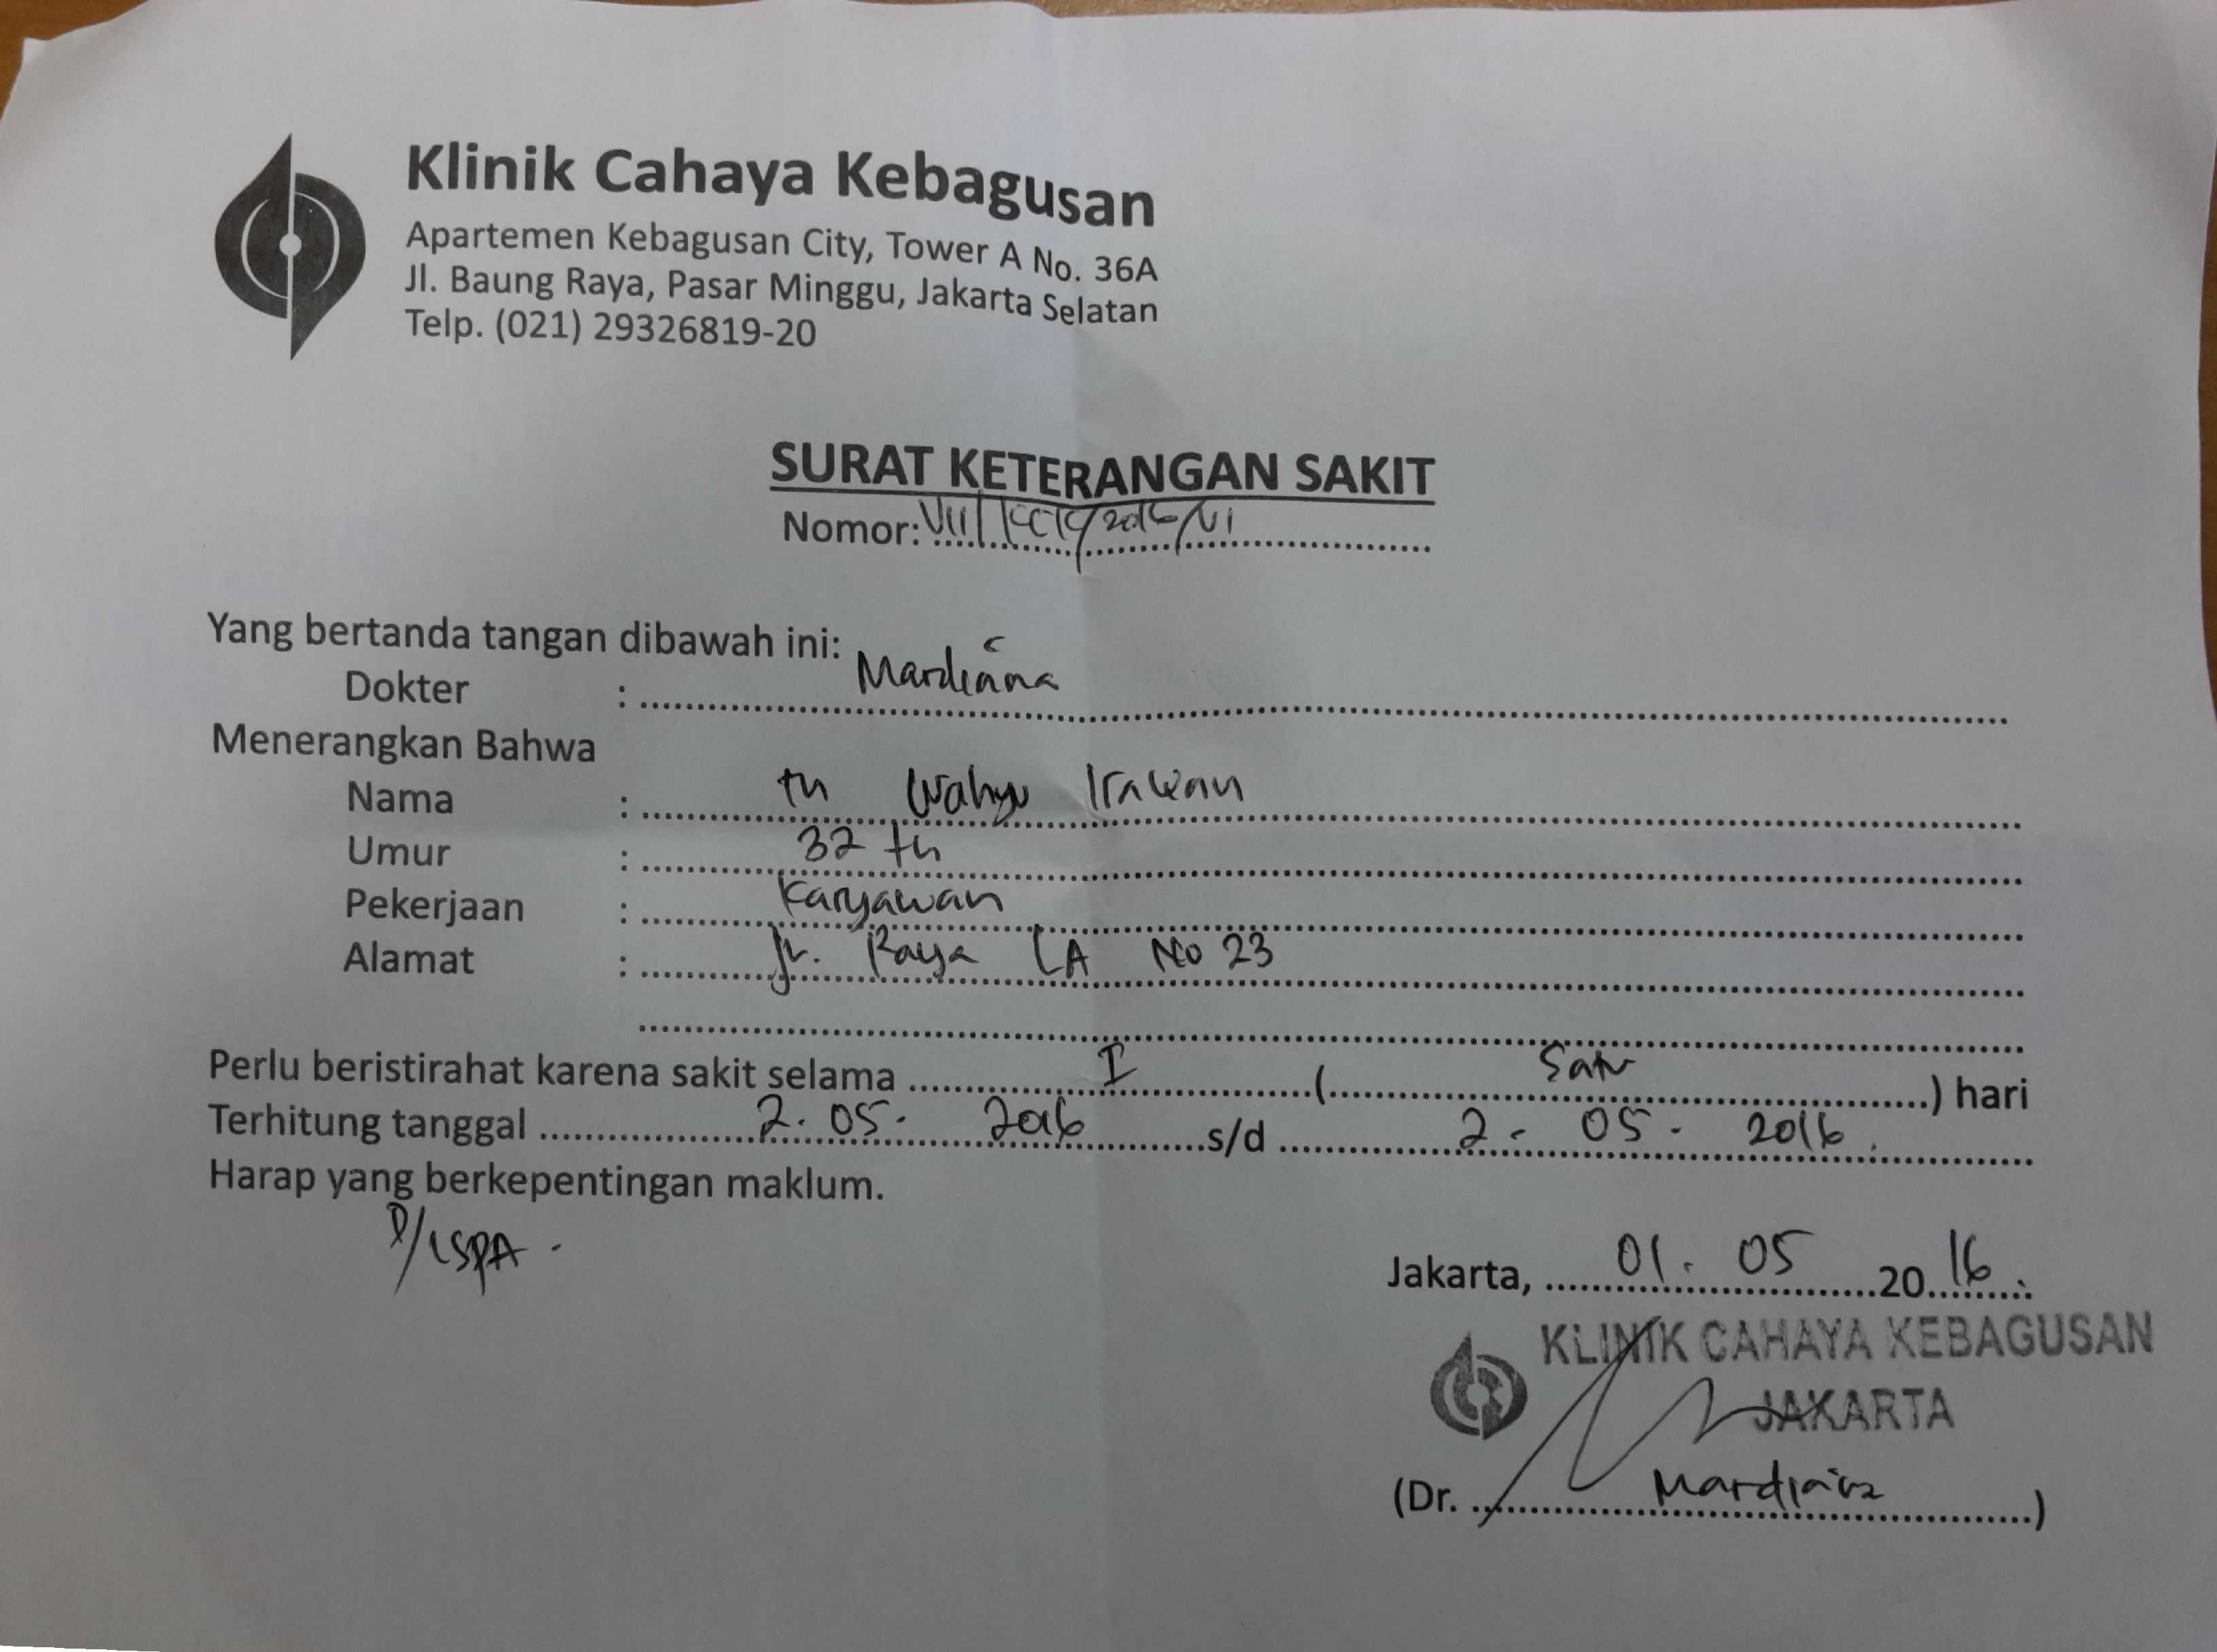 Klinik Cahaya Kebagusan
Apartemen Kebagusan City, Tower A No. 36A
Jl. Baung Raya, Pasar Minggu, Jakarta Selatan
Telp. (021) 29326819-20
SURAT KETERANGAN SAKIT
Nomor: VII/KCK/2016/VI
Yang bertanda tangan dibawah ini:
Dokter : Mardiana
Menerangkan Bahwa
Nama : tn Wahyu Irawan
Umur : 32 th
Pekerjaan : Karyawan
Alamat : Jl. Raya LA No 23
Perlu beristirahat karena sakit selama I ( Satu ) hari
Terhitung tanggal 2. 05. 2016 s/d 2 - 05 - 2016.
Harap yang berkepentingan maklum.
D/ISPA .
Jakarta, 01. 05 2016.
KLINIK CAHAYA KEBAGUSAN
JAKARTA
(Dr. Mardiana)